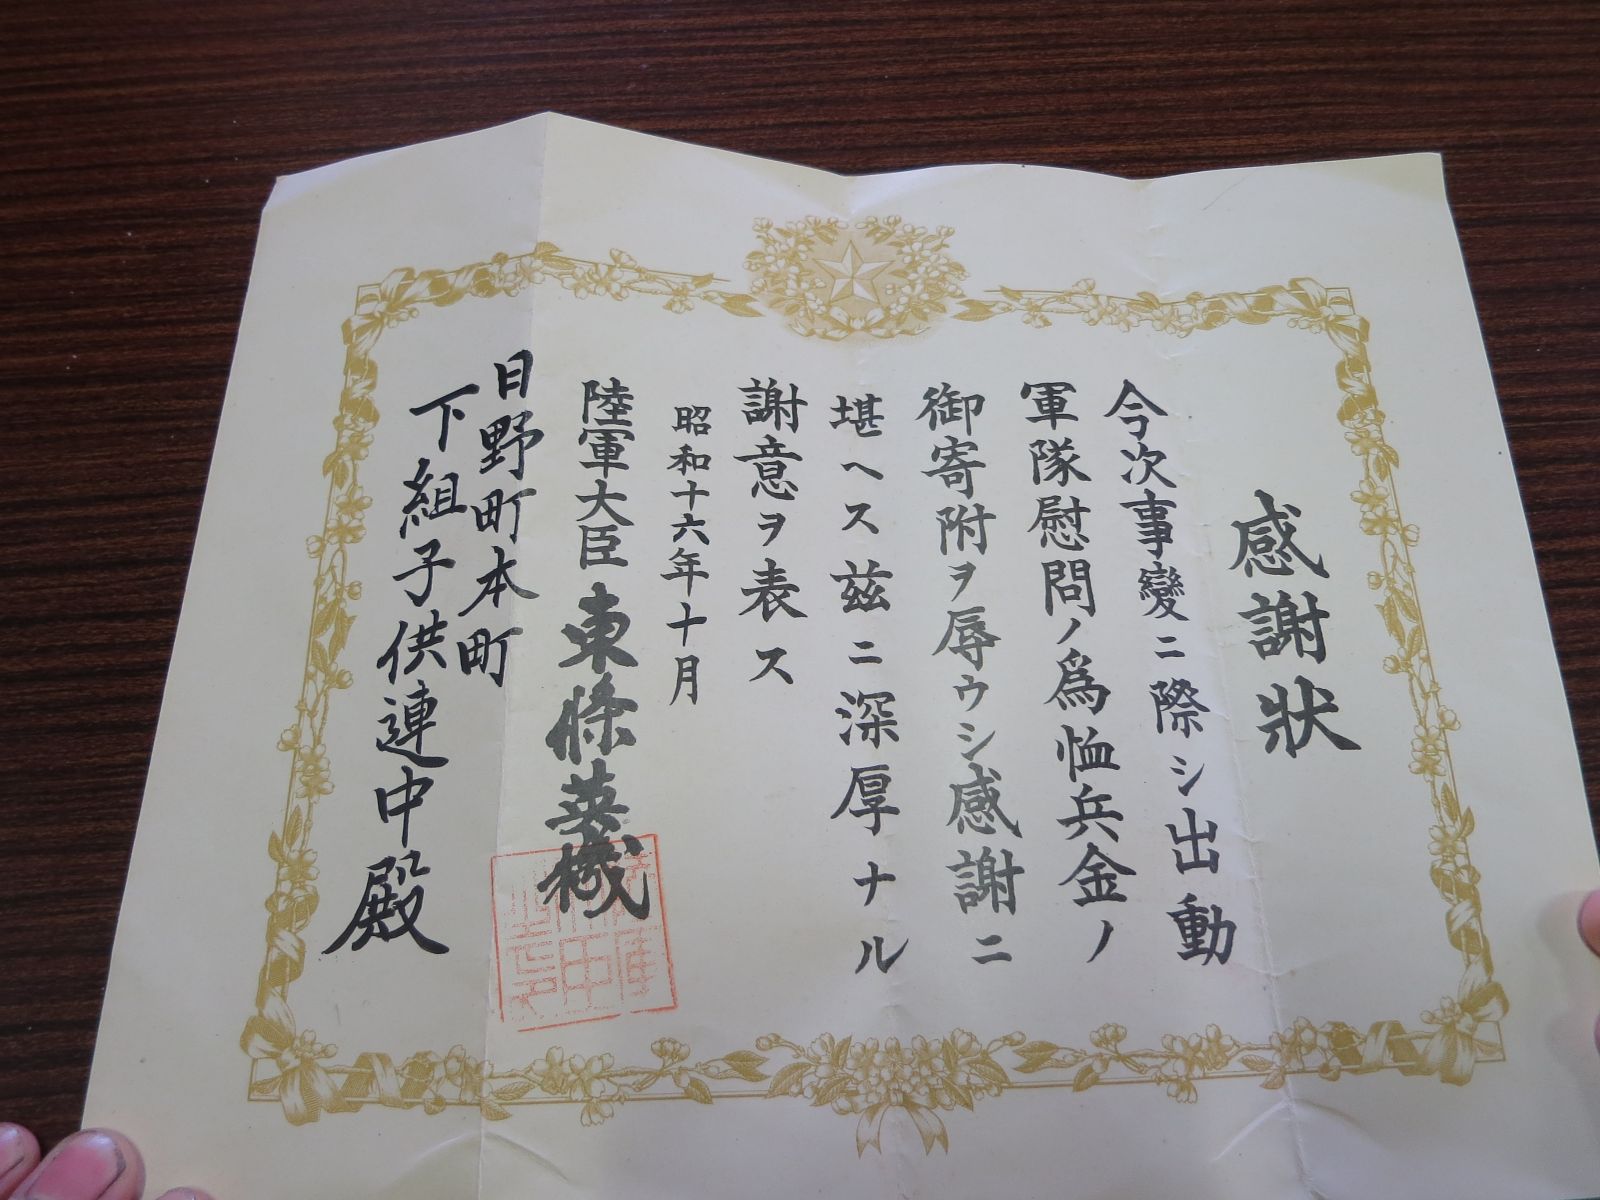 感謝狀
今次事變ニ際シ出動
軍隊慰問ノ爲恤兵金ノ
御寄附ヲ辱ウシ感謝ニ
堪ヘス茲ニ深厚ナル
謝意ヲ表ス
昭和十六年十月
陸軍大臣 東條英機
日野町本町
下組子供連中殿